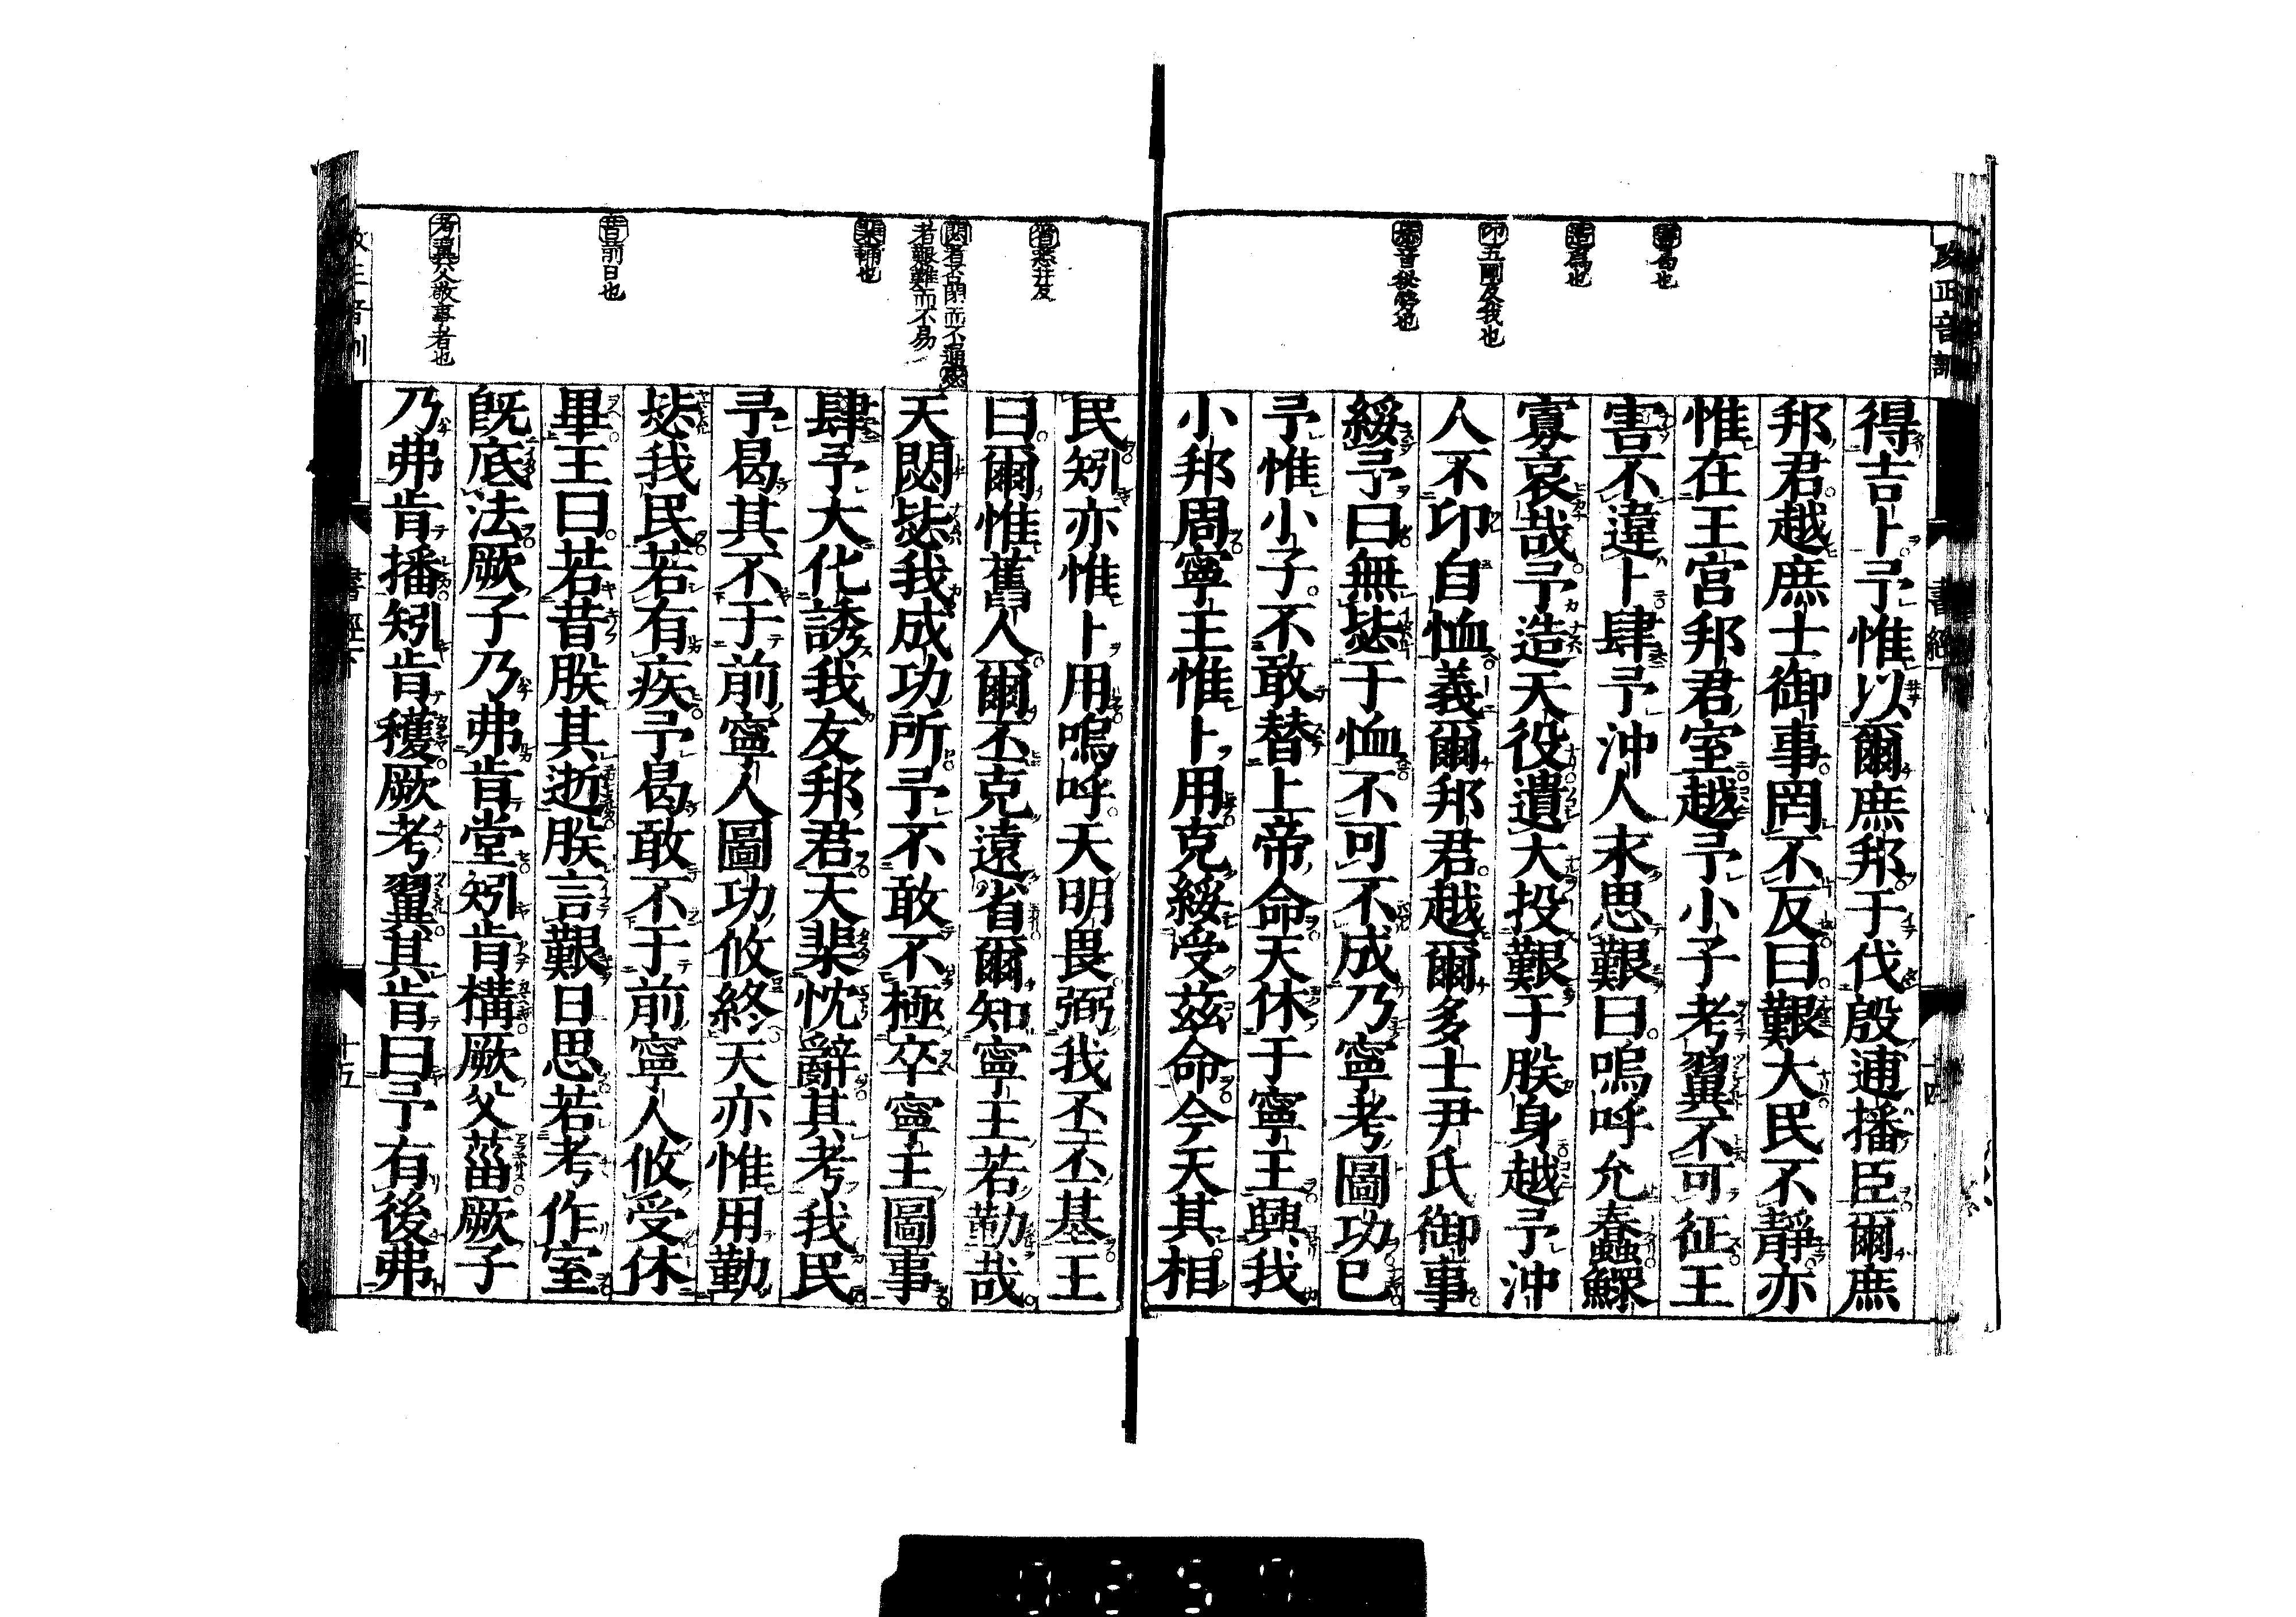 得吉卜予惟以爾庶邦于伐殷逋播臣爾庶
邦君越庶士御事罔不反曰艱大民不靜亦
惟在王宮邦君室越予小子考翼不可征王
害不違卜肆予沖人永思艱曰嗚呼允蠢鰥
寡哀哉予造天役遺大投艱于朕身越予沖
人不卬自恤義爾邦君越爾多士尹氏御事
綏予曰無毖于恤不可不成乃寧考圖功已
予惟小子不敢替上帝命天休于寧王興我
小邦周寧王惟卜用克綏受茲命今天其相
造為也
卬五剛反我也
毖音秘勞也
改正音訓
書經
十四
民矧亦惟卜用嗚呼天明畏弼我丕丕基王
曰爾惟舊人爾丕克遠省爾知寧王若勤哉
天閟毖我成功所予不敢不極卒寧王圖事
肆予大化誘我友邦君天棐忱辭其考我民
予曷其不于前寧人圖功攸終天亦惟用勤
毖我民若有疾予曷敢不于前寧人攸受休
畢王曰若昔朕其逝朕言艱日思若考作室
既底法厥子乃弗肯堂矧肯構厥父菑厥子
乃弗肯播矧肯穫厥考翼其肯曰予有後弗
省悉井反
閟者否閉而不通毖
者艱難而不易
棐輔也
昔前日也
考翼父敬事者也
書經下
十五